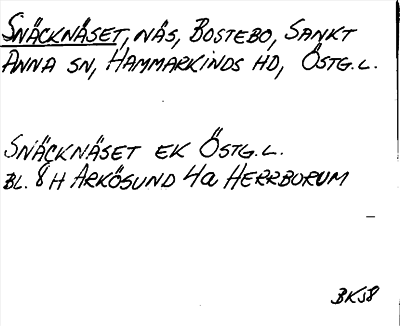 SNÄCKNÄSET, NÄS, BOSTEBO, SANKT
ANNA SN, HAMMARKINDS HD, ÖSTG.L.
SNÄCKNÄSET EK ÖSTG.L.
BL. 8H ARKÖSUND 4a HERRBORUM
BKS8